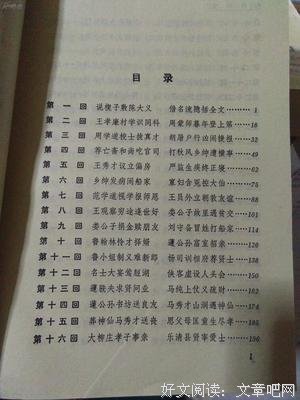 目录
第一回 说楔子敷陈大义 借名流隐括全文……1
第二回 王孝廉村学识同科 周蒙师暮年登上第……
第三回 周学道校士拔真才 胡屠户行凶闹捷报……
第四回 荐亡斋和尚吃官司 打秋风乡绅遭横事……
第五回 王秀才议立偏房 严监生疾终正寝……
第六回 乡绅发病闹船家 寡妇含冤控大伯……
第七回 范学道视学报师恩 王员外立朝敦友谊……
第八回 王观察穷途逢世好 娄公子故里遇贫交……
第九回 娄公子捐金赎朋友 刘守备冒姓打船家……
第十回 鲁翰林怜才择婿 蘧公孙富室招亲……
第十一回 鲁小姐制义难新郎 杨司训相府荐贤士……
第十二回 名士大宴莺脰湖 侠客虚设人头会……
第十三回 蘧駪夫求贤问业 马纯上仗义疏财……
第十四回 蘧公孙书坊送良友 马秀才山洞遇神仙……174
第十五回 葬神仙马秀才送丧 思父母匡童生尽孝……
第十六回 大柳庄孝子事亲 乐清县贤宰爱士……196
1
好文阅读：文章吧网